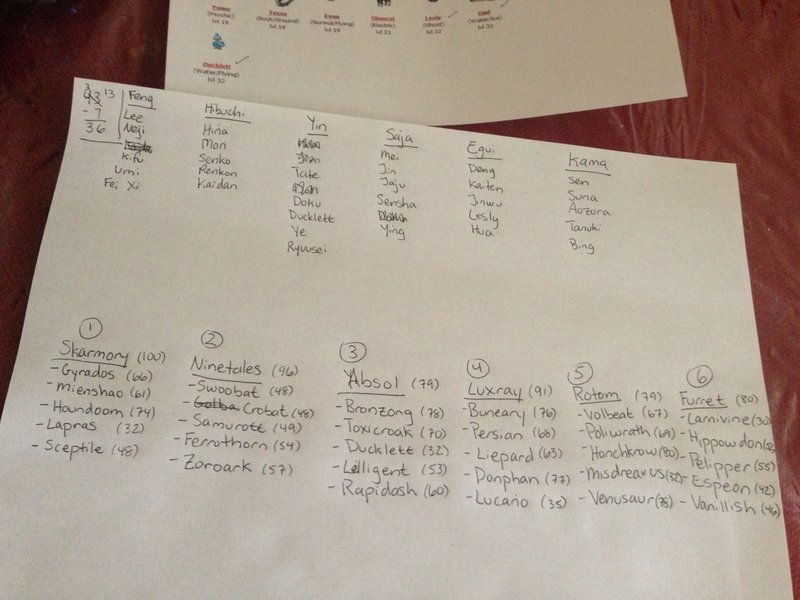 Yume
(Psychic)
lvl 19
Tessa
(Rock/Ground)
lvl 19
Evan
(Normal/Flying)
lvl 19
(Electric)
lvl 21
Lesly
(Ghost)
lvl 32
Umi
(Water/Ice)
lvl 32
Ducklett
(Water/Flying)
lvl 32
3 13
43
- 7
36
Feng
Lee
Neji
Kifu
Umi
Fei Xi
Hibuchi
Hina
Mon
Senko
Renkon
Kaidan
Yin
Tate
Doku
Ducklett
Ye
Ryuusei
Saja
Mei
Jin
Jaju
Sensha
Ying
Egui
Deng
Kaiten
Jinwu
Lesly
Hua
Kama
Sen
Suna
Aozora
Tanuki
Bing
1
Skarmory (100)
- Gyrados (66)
- Mienshao (61)
- Houndoom (74)
- Lapras (32)
- Sceptile (48)
2
Ninetales (96)
- Swoobat (48)
- Golba Crobat (48)
- Samurott (49)
- Ferrothorn (54)
- Zoroark (57)
3
Absol (79)
- Bronzong (78)
- Toxicroak (70)
- Ducklett (32)
- Lilligent (53)
- Rapidash (60)
4
Luxray (91)
- Buneary (76)
- Persian (68)
- Liepard (63)
- Donphan (77)
- Lucario (35)
5
Rotom (79)
- Volbeat (67)
- Poliwrath (69)
- Honchkrow (80)
- Misdreavus (32)
- Venusaur (78)
6
Furret (80)
- Larnivine (30)
- Hippowdon
- Pelipper (55)
- Espeon (42)
- Vanillish (46)